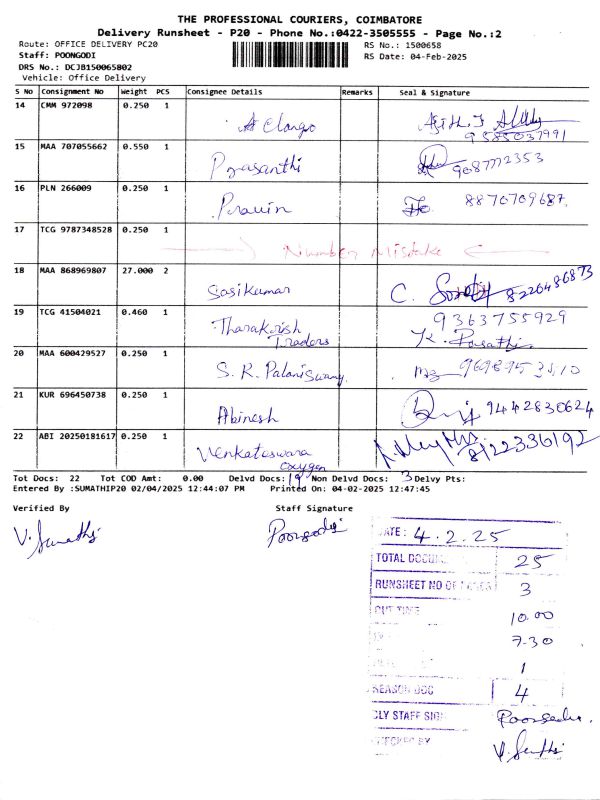 THE PROFESSIONAL COURIERS, COIMBATORE
Delivery Runsheet - P20 - Phone No.:0422-3505555 - Page No.:2
Route: OFFICE DELIVERY PC20 RS No.: 1500658
Staff: POONGODI RS Date: 04-Feb-2025
DRS No.: DCJB150065802
Vehicle: Office Delivery
S No Consignment No Weight PCS Consignee Details Remarks Seal & Signature
14 CMM 972098 0.250 1
A Elango
9585037991
15 MAA 707055662 0.550 1
Prasanthi 9087772353
16 PLN 266009 0.250 1
Pravin 8870709687
17 TCG 9787348528 0.250 1
Number Mistake
18 MAA 868969807 27.000 2
Sasikumar C. 8226486873
19 TCG 41504021 0.460 1
9363755929
Tharakrish
Traders
20 MAA 600429527 0.250 1
S. R. Palaniswamy
21 KUR 696450738 0.250 1
Abinesh 9442830624
22 ABI 20250181617 0.250 1
Venkateswara 8122336192
oxygen
Tot Docs: 22 Tot COD Amt: 0.00 Delvd Docs: 19 Non Delvd Docs: 3 Delvy Pts:
Entered By :SUMATHIP20 02/04/2025 12:44:07 PM Printed On: 04-02-2025 12:47:45
Verified By Staff Signature
V. Sumathi Poongodi
DATE: 4.2.25
TOTAL 25
RUNSHEET NO OF 3
OUT TIME 10.00
7-30
1
REASON DOC 4
DLY STAFF SIGN Poongodi
CHECKED BY V. Sumathi